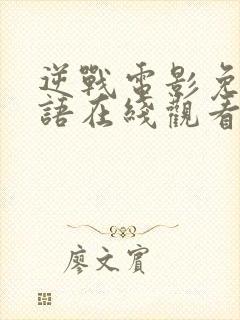 逆戰電影免
語在綫觀看
廖文賓